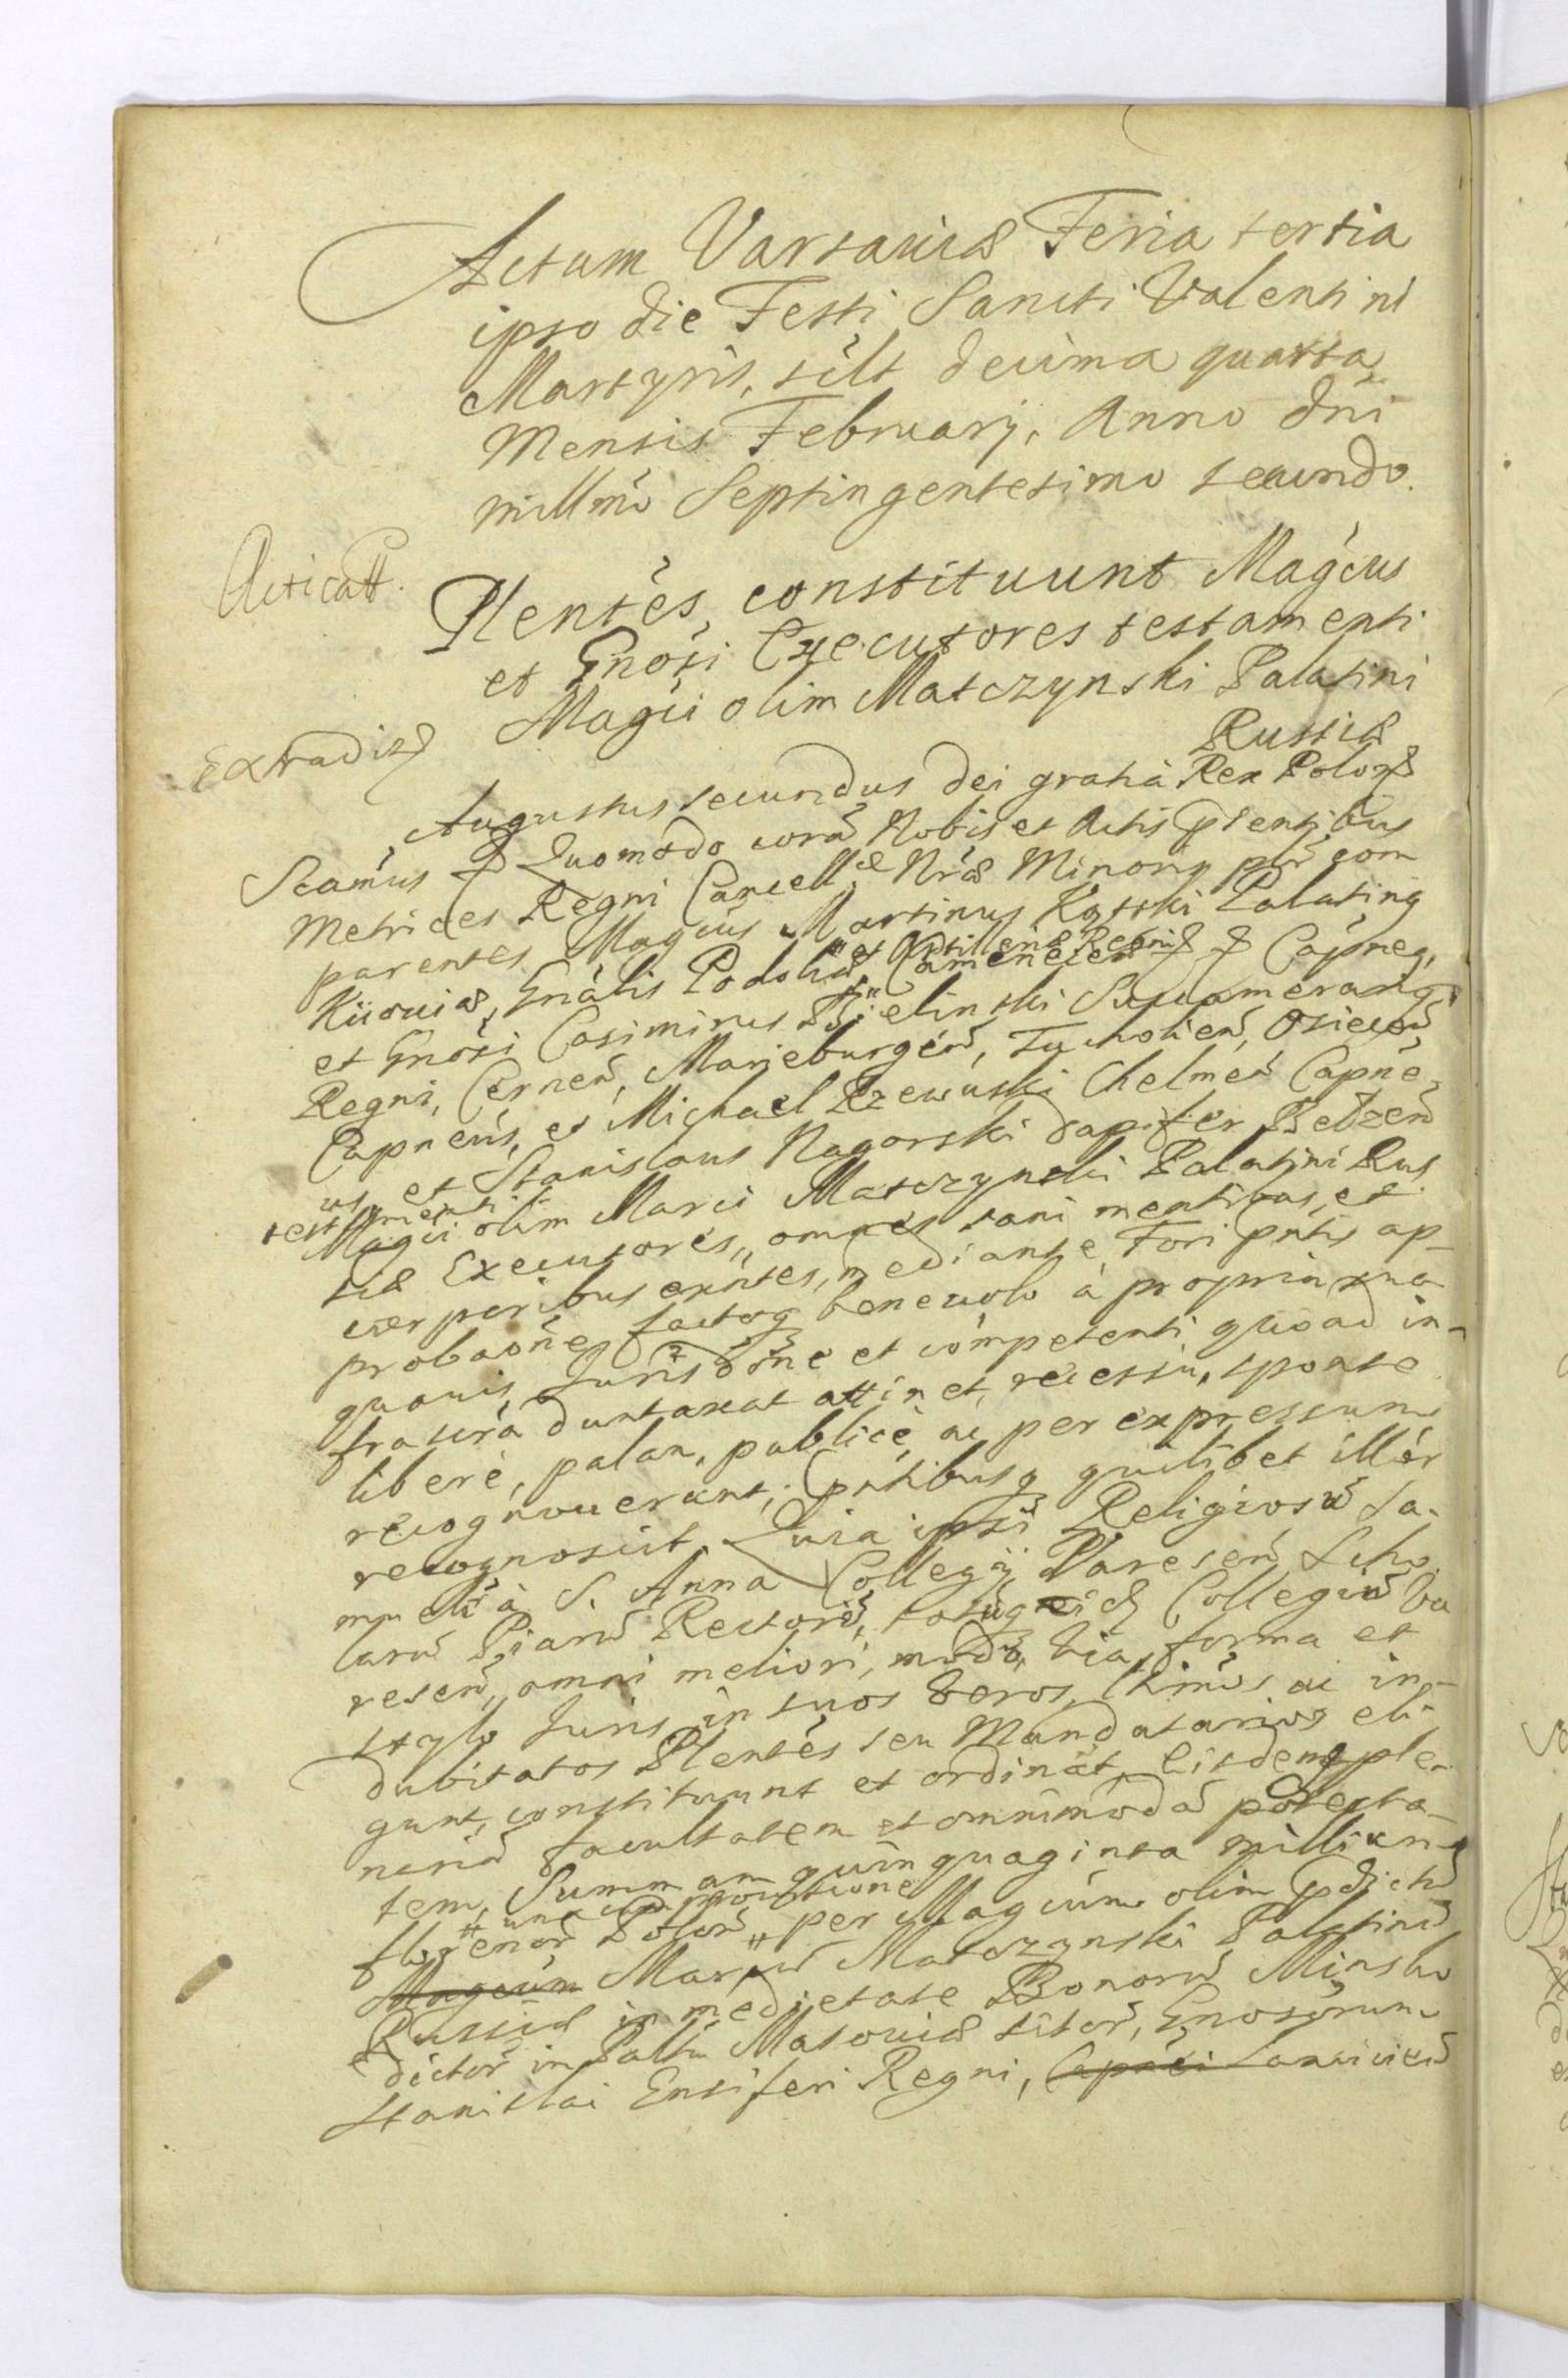 Actum Varsaviæ Feria tertia
ipso die Festi Sancti Valentini
Martyris, silt decima quarta
Mensis Februarij, Anno dni
millmo Septingentesimo secundo.
Acticatt.
Plentes, constituunt Magcus
et Gnosi Executores testamenti
Magci olim Matczynski Palatini
Russiæ
Extradit
Augustus secundus Dei gratia Rex Polo
Scamus Quomodo cora Nobis et Actis Plentibus
Metrices Regni Cancell Nræ Minoris com
parentes Magcus Martinus Kątski Palatinq
Kijoviæ, Gnalis Podoliæ, Camenecen Capneq,
et Artilleriæ Regni
et Gnosi Casimirus Bielinski Succamerariq
Regni, Cernen, Marjeburgen, Tucholien, Osiecen,
Capneus, et Michael Rzewuski Chelmen Capne
us, et Stanislaus Nagorski dapifer Belzen
testamenti
Magci olim Marci Matczynski Palatini Rus
siæ Executores, omnes sani mentibus, et
corporibus exntes, mediante Fori pntis ap-
probaone factoq benevolo à propria sua
quavis Jurisdone et competenti quoad in-
frascra duntaxat attinet, recessu, sponte
libere, palam, publice ac per expressum
recognoverunt, pntibusq quilibet illor
recognoscit. Quia ipsi Religiosu Sa-
muelu à S. Anna Collegij Varesen Scho
laru Piaru Rectore, totuq Collegiu Va
resen, omni meliori, modo, via, forma et
stylo Juris in suos veros, ltimos ac in-
dubitatos Plentes seu Mandatarios eli-
gunt, constituunt et ordinat, Eisdemq ple-
naria facultatem et omnimoda potesta-
tem, Summam quinquaginta milli
una cum provisione
floreñor Polon, per Magcum olim
Magcum Marcu Matczynski Palatinu
Russiæ in medietate Bonoru Minsko
dictor in Paltu Masoviæ sitor, Gnosorum
Stanislai Ensiferi Regni, Capnei Lancicien